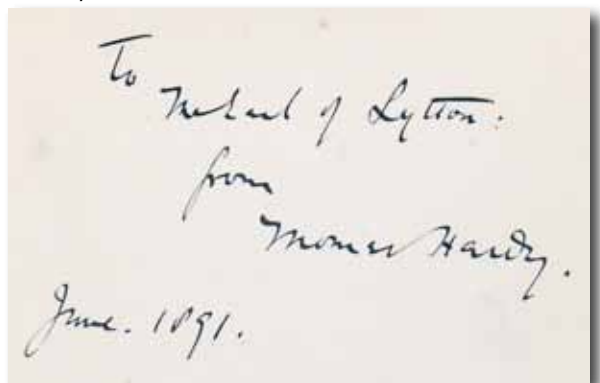 To
The Earl of Lytton.
from
Thomas Hardy.
June. 1891.